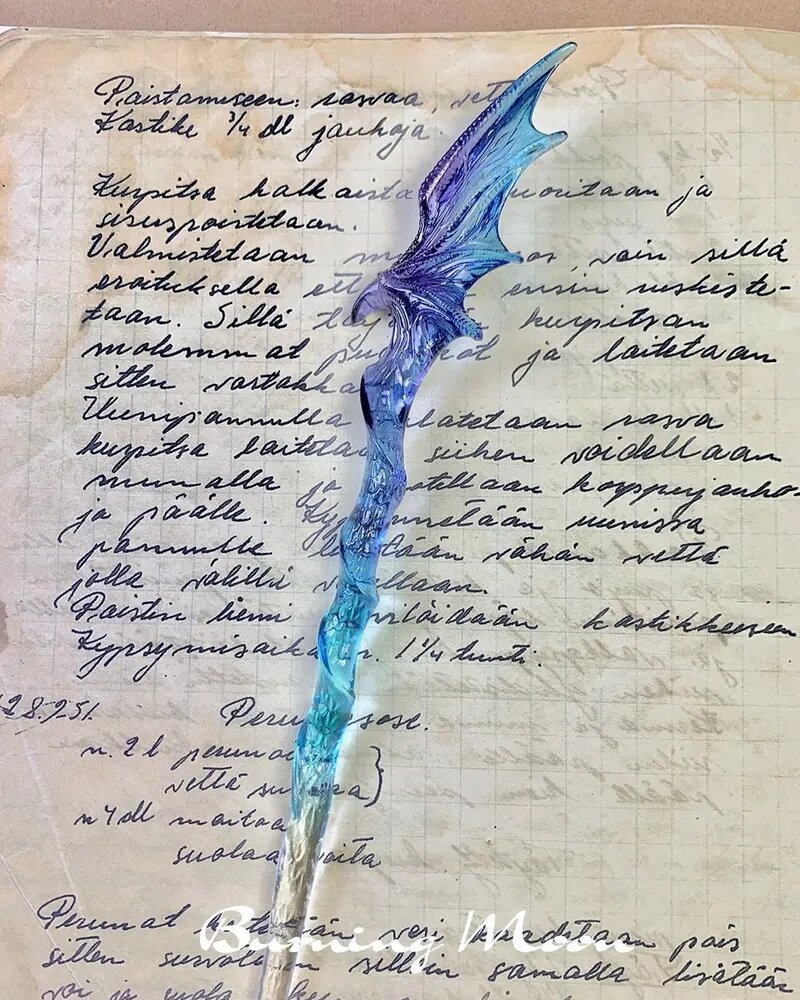 Paistamiseen: rasvaa, vett
Kastike 3/4 dl jauhoja
Kurpitsa halkaista uoritaan ja
sisuspoistetaan.
Valmistetaan m os, vain sillä
eroituksella ett ensin ruskiste-
taan. Sillä täy än kurpitsan
molemmat pu ot ja laitetaan
sitten vastakka
Uunipannulla latetaan rasva
kurpitsa laiteta siihen voidellaan
munalla ja otellaan korppujauho-
ja päälle. Ky nnetään uunissa
pannulle li tään vähän vettä
jolla välillä v ellaan.
Paistin liemi rilöidään kastikkeeseen
Kypsymisaika n. 1 1/4 tuntti.
28.9-51. Perun sose.
n. 2 l peruno
vettä su a
n 4 dl maitoa
suolaa voita
Perunat k tään, vesi kaadetaan pois
sitten survota n silliin samalla lisätään
voi ja suola
Burning Moon